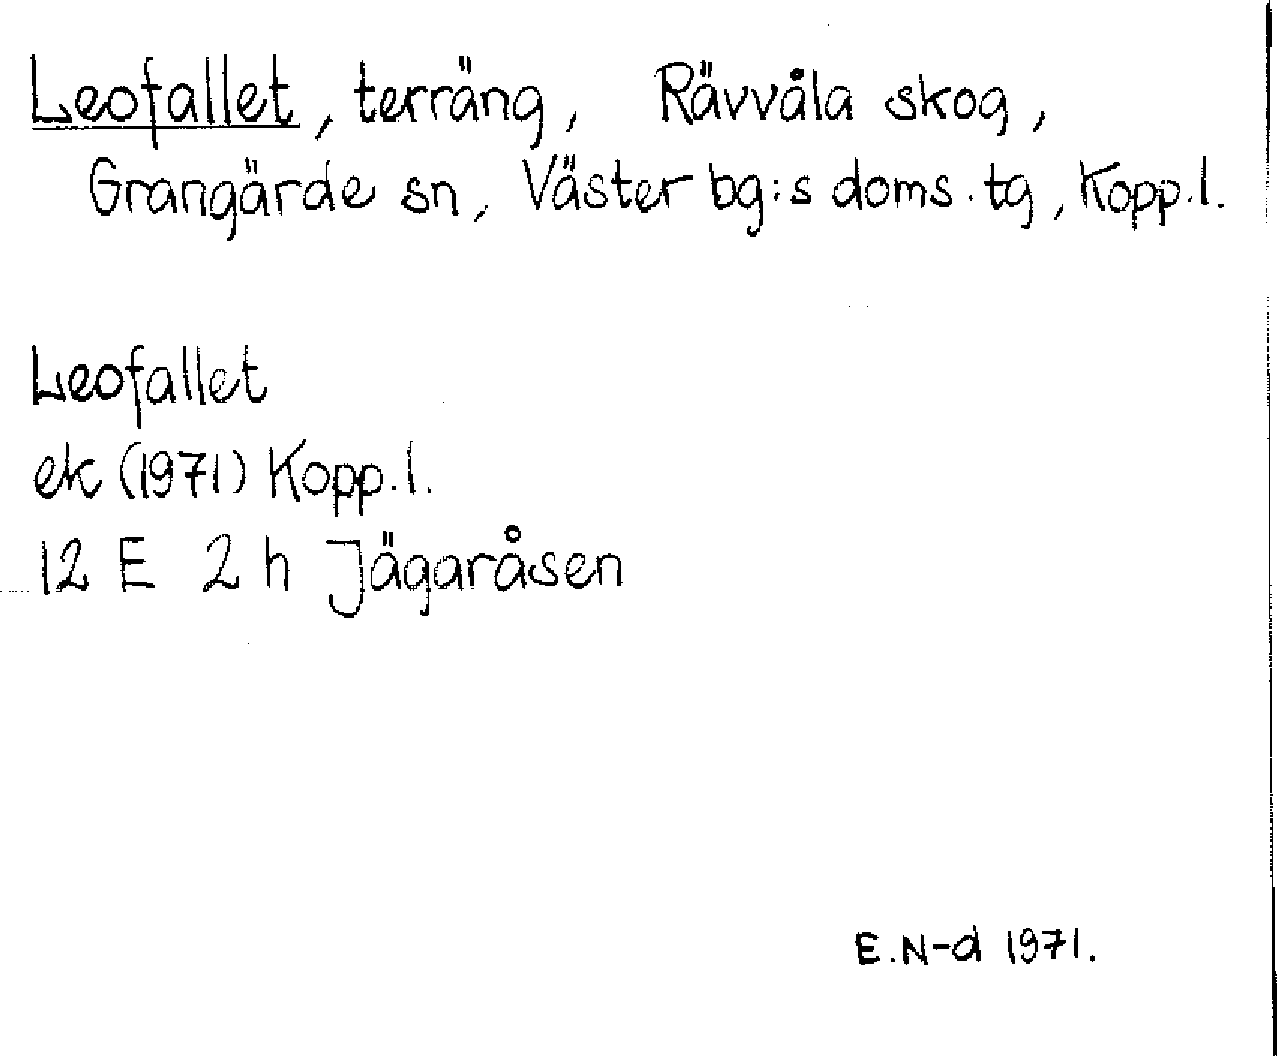 Leofallet, terräng, Rävvåla skog,
Grangärde sn, Väster bg:s doms.tg, Kopp.l.
Leofallet
ek (1971) Kopp.l.
12 E 2 h Jägaråsen
E.N-d 1971.